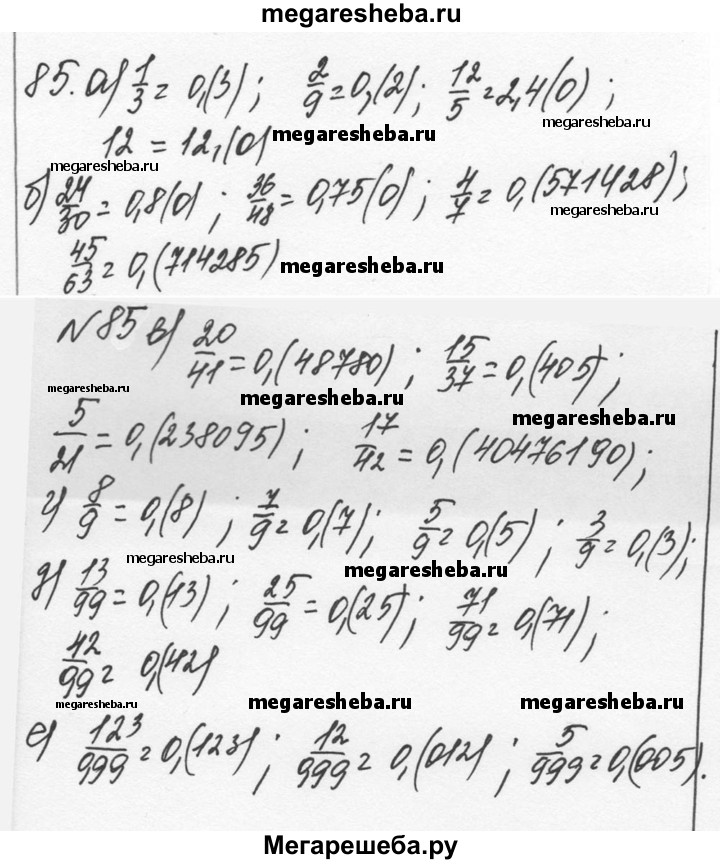 megaresheba.ru
85. а) 1/3 = 0,(3); 2/9 = 0,(2); 12/5 = 2,4(0);
megaresheba.ru
12 = 12,(0)
megaresheba.ru
megaresheba.ru
megaresheba.ru
б) 24/30 = 0,8(0); 36/48 = 0,75(0); 4/7 = 0,(571428);
megaresheba.ru
45/63 = 0,(714285)
megaresheba.ru
N 85 в) 20/41 = 0,(48780); 15/37 = 0,(405);
megaresheba.ru
megaresheba.ru
megaresheba.ru
5/21 = 0,(238095); 17/42 = 0,(40476190);
г) 8/9 = 0,(8); 7/9 = 0,(7); 5/9 = 0,(5); 3/9 = 0,(3);
megaresheba.ru
megaresheba.ru
д) 13/99 = 0,(13); 25/99 = 0,(25); 71/99 = 0,(71);
42/99 = 0,(42)
megaresheba.ru
megaresheba.ru
megaresheba.ru
е) 123/999 = 0,(123); 12/999 = 0,(012); 5/999 = 0,(005).
Мегарешеба.ру